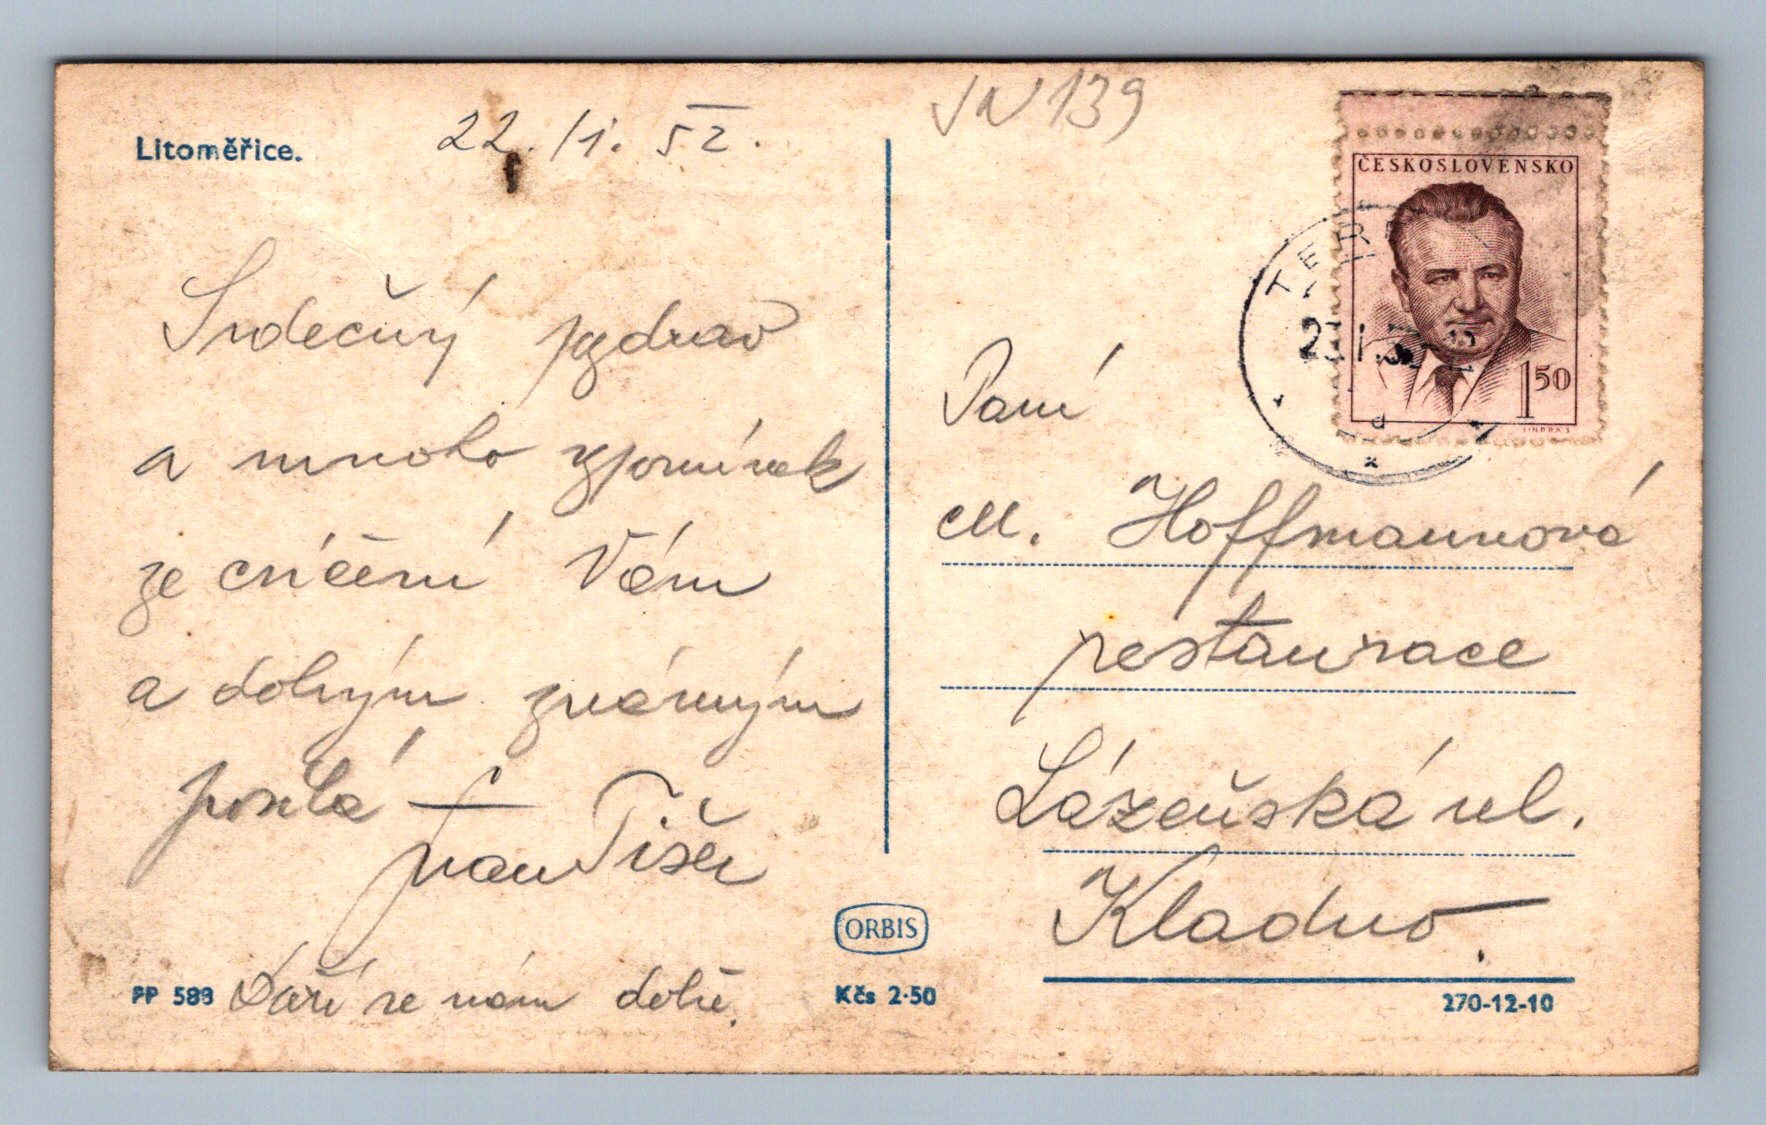 Litoměřice.
22./1. 52.
Srdečný pozdrav
a mnoho vzpomínek
ze cvičení Vám
a dobrým známým
posílá
Daří se nám dobře.
PP 588
ORBIS
Kčs 2·50
JN 139
ČESKOSLOVENSKO
1.50
TER
Paní
M. Hoffmannová
restaurace
Lázeňská ul.
Kladno.
270-12-10